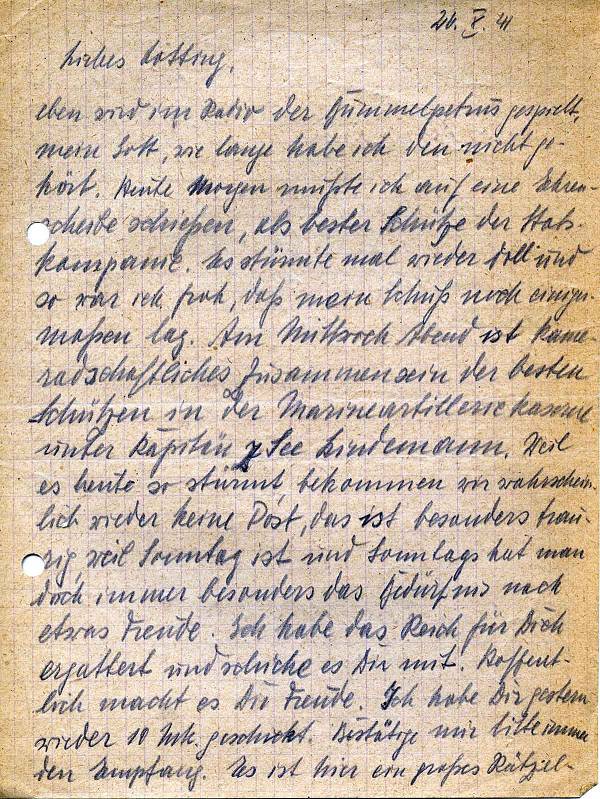 26. X. 41
Liebes Lotting,
eben wird im Radio der Hummelpetrus gespielt,
mein Gott, wie lange habe ich den nicht ge-
hört. Heute Morgen mußte ich auf eine Ehren-
scheibe schießen, als bester Schütze der Stabs-
kompanie. Es stürmte mal wieder doll und
so war ich froh, daß mein Schuß noch einiger-
maßen lag. Am Mittwoch Abend ist Kame-
radschaftliches Zusammensein der besten
Schützen in der Marineartilleriekaserne
unter Kapitän z See Lindemann. Weil
es heute so stürmt, bekommen wir wahrschein-
lich wieder keine Post, das ist besonders trau-
rig, weil Sonntag ist und Sonntags hat man
doch immer besonders das Bedürfnis nach
etwas Freude. Ich habe das Reich für Dich
ergattert und schicke es Dir mit. Hoffent-
lich macht es Dir Freude. Ich habe Dir gestern
wieder 10 Mk. geschickt. Bestätige mir bitte immer
den Empfang. Es ist hier ein großes Rätzel-